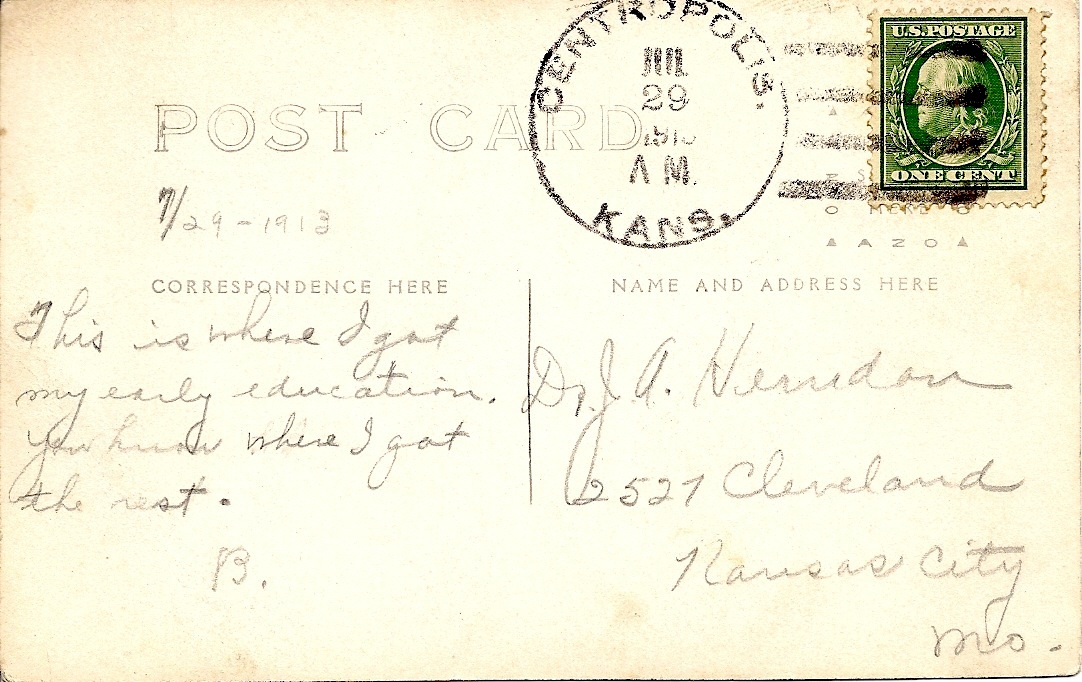 CENTROPOLIS.
JUL
29
A M.
KANS.
U.S. POSTAGE
ONE CENT
POST CARD
HERE
AZO
7/29-1913
CORRESPONDENCE HERE
NAME AND ADDRESS HERE
This is where I got
my early education.
you know where I got
the rest.
B.
Dr. J. A. Herndon
2527 Cleveland
Kansas City
Mo.